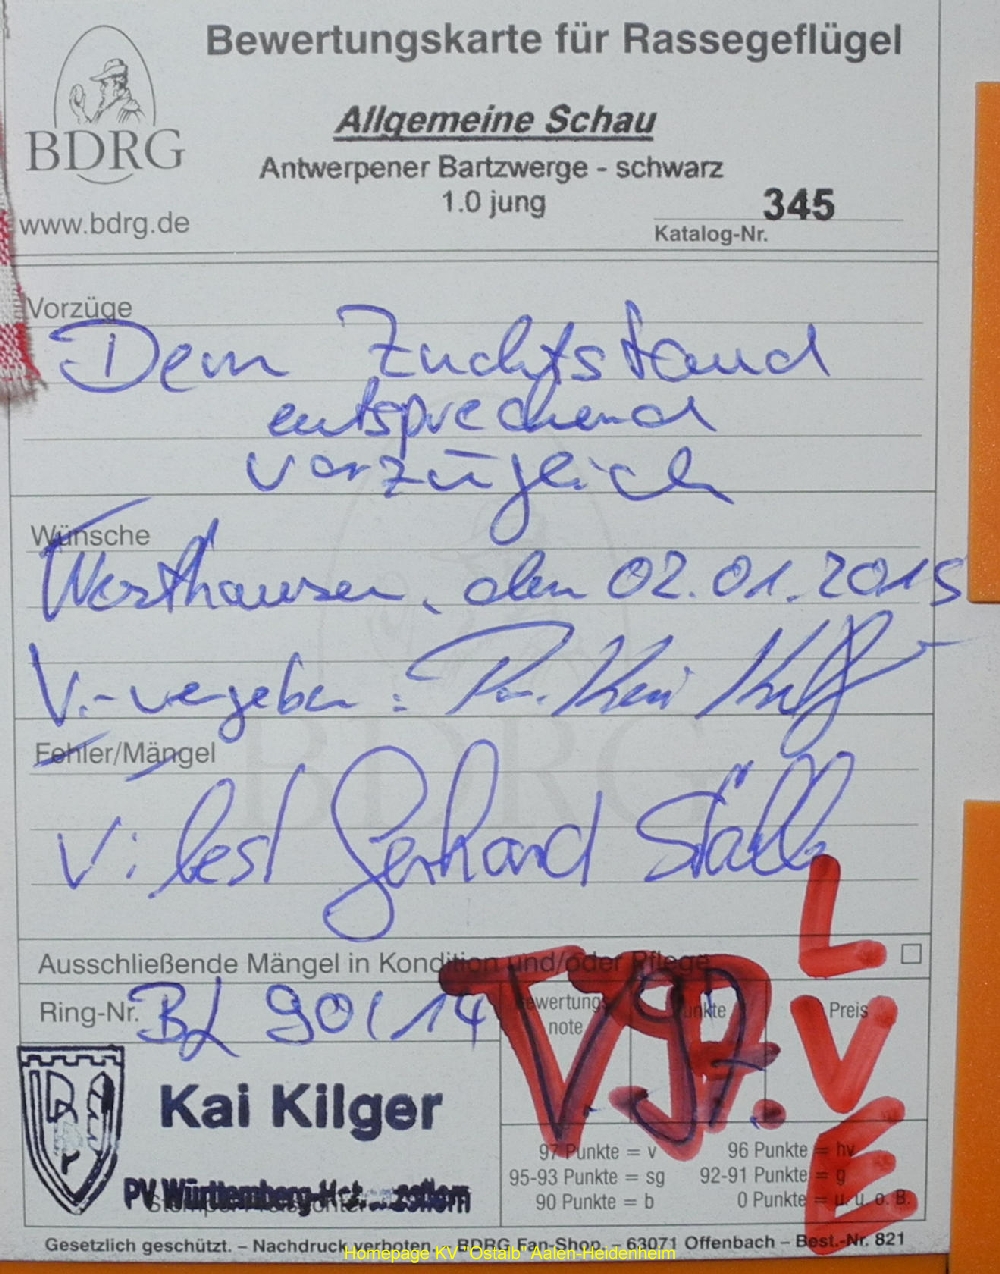 Bewertungskarte für Rassegeflügel
BDRG
www.bdrg.de
Allgemeine Schau
Antwerpener Bartzwerge - schwarz
1.0 jung
345
Katalog-Nr.
Vorzüge
Dem Zuchtstand
entsprechend
vorzüglich
Wünsche
Westhausen, den 02.01.2015
V.-vergeben : Kai
Fehler/Mängel
V: best Gerhard Stäb
BDRG
Ausschließende Mängel in Kondition und/oder Pflege
Ring-Nr. BL 90/14
Bewertungs note Punkte Preis
V 97.
LVE
Kai Kilger
PV Württemberg-H
97 Punkte = v 96 Punkte = hv
95-93 Punkte = sg 92-91 Punkte = g
90 Punkte = b 0 Punkte = u. u. o. B.
Gesetzlich geschützt. – Nachdruck verboten BDRG Fan-Shop. – 63071 Offenbach – Best.-Nr. 821
Homepage KV "Ostalb" Aalen-Heidenheim